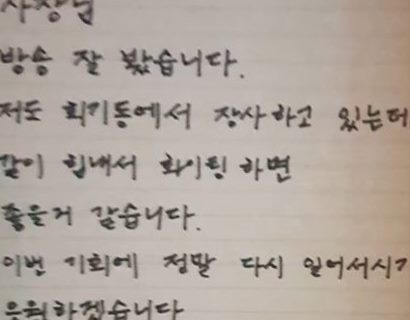 사장님
방송 잘 봤습니다.
저도 회기동에서 장사하고 있는데
같이 힘내서 화이팅 하면
좋을거 같습니다.
이번 기회에 정말 다시 일어서시기
응원하겠습니다